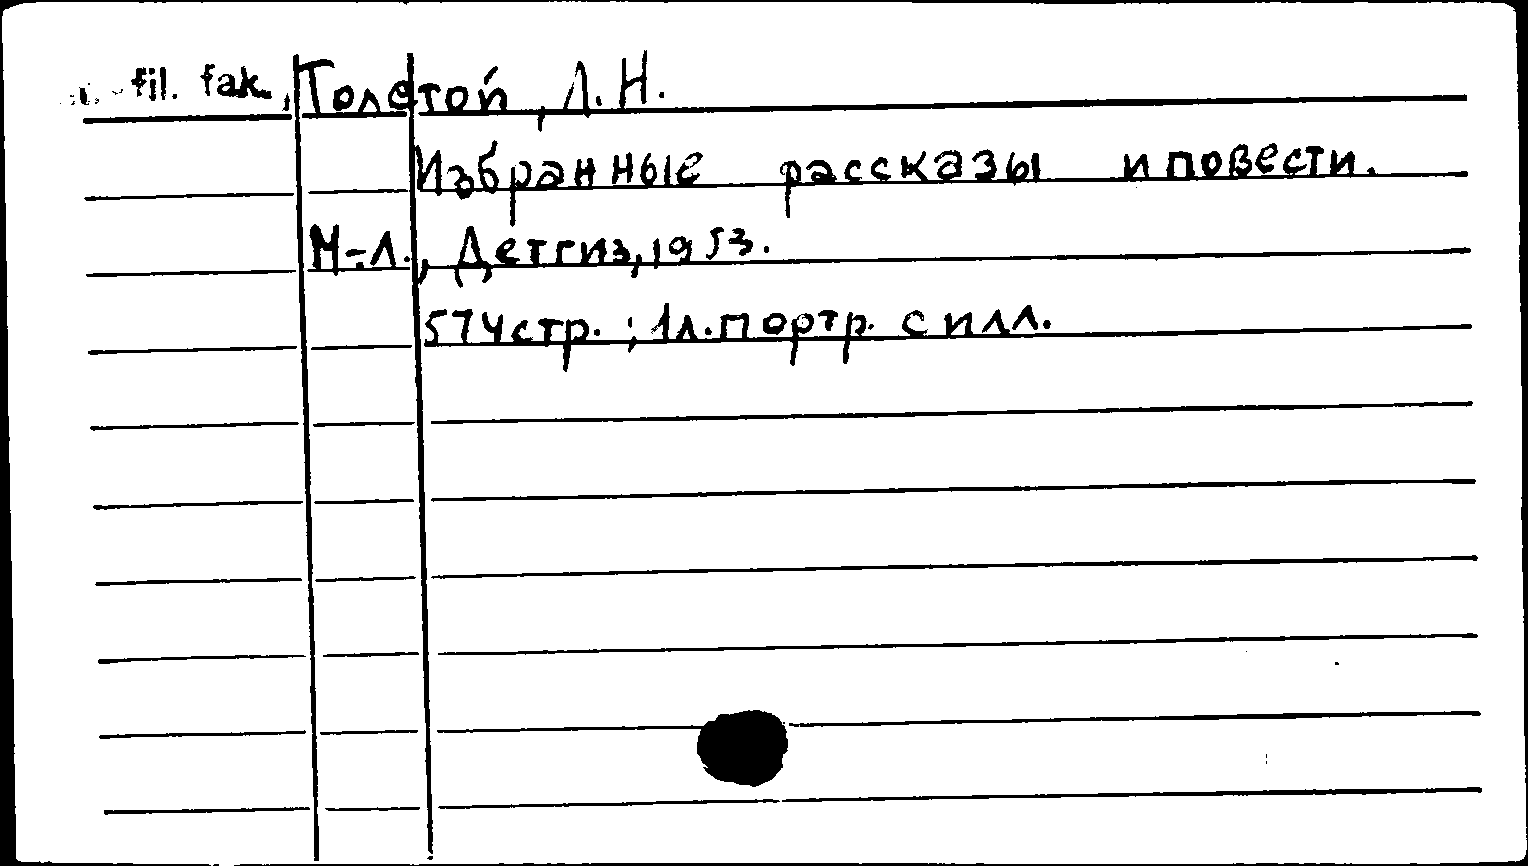 fil. fak. Толстой, Л. Н.
Избранные рассказы и повести.
М.-Л., Детгиз, 1953.
574 стр. ; 1 л. портр. с илл.